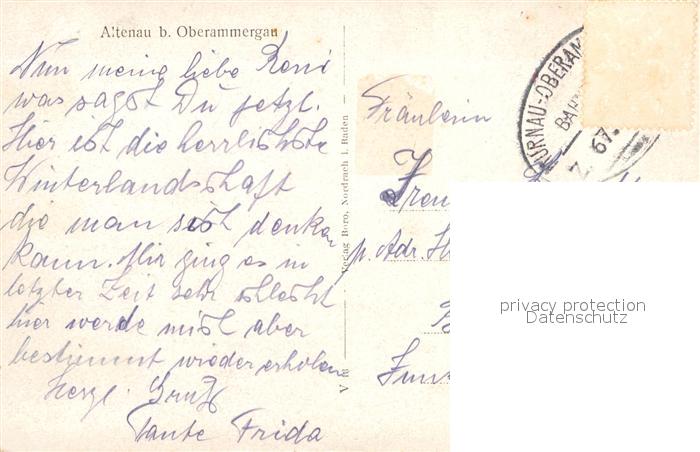 Altenau b. Oberammergau
Nun meine liebe Reni
was sagst Du jetzt.
Hier ist die herrlichste
Winterlandschaft
die man sich denken
kann. Mir ging es in
letzter Zeit sehr schlecht
hier werde mich aber
bestimmt wieder erholen
Herzl. Gruß
Tante Frida
Verlag Boro, Nordrach i. Baden
Fräulein
p. Adr.
MURNAU-OBERAM
BAH
Z. 67
privacy protection
Datenschutz